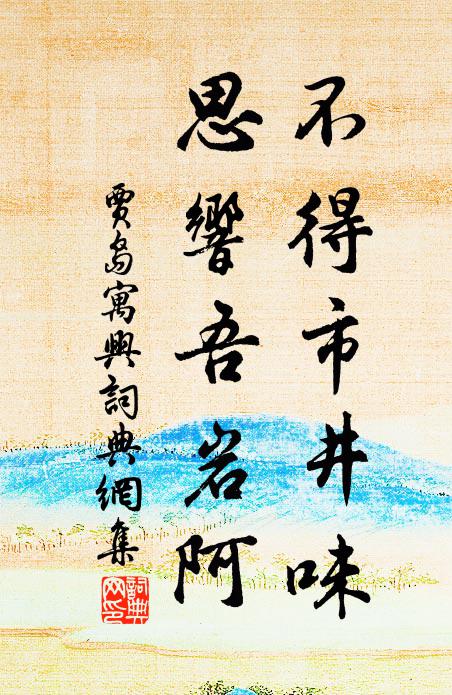 不得市井味
思響吾岩阿
賈島寓興詞典網集